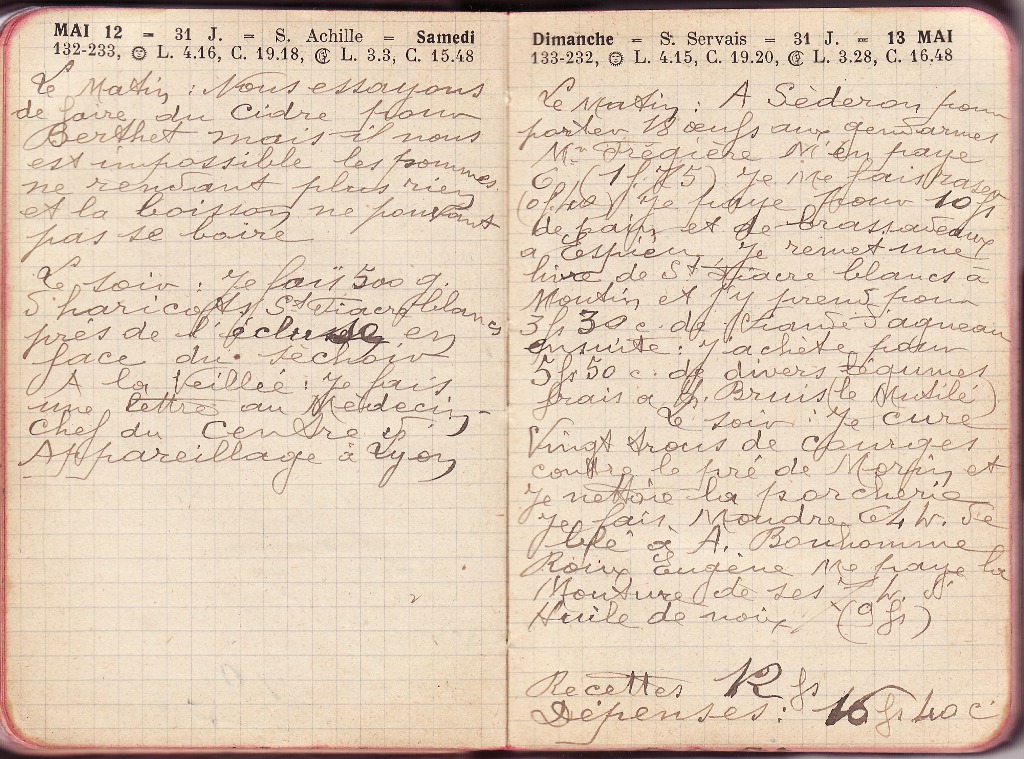 MAI 12 = 31 J. = S. Achille = Samedi
132-233, L. 4.16, C. 19.18, L. 3.3, C. 15.48
Le Matin : Nous essayons
de faire du cidre pour
Berthet mais il nous
est impossible les pommes
ne rendant plus rien
et la boisson ne pouvant
pas se boire
Le soir : Je fais 500 g.
d'haricots St Fiacre blancs
près de l'écluse en
face du séchoir
A la Veillée : Je fais
une lettre au Médecin-
chef du Centre d'
Appareillage à Lyon
Dimanche = S. Servais = 31 J. = 13 MAI
133-232, L. 4.15, C. 19.20, L. 3.28, C. 16.48
Le Matin : A Séderon pour
porter 18 œufs aux gendarmes
Mr Frégière M'en paye
6 (1f.75) Je Me fais raser
Je paye pour 10 fs
de pain et de brassadeaux
a Espieu, Je remet une
livre de St Fiacre blancs à
Moutin et j'y prend pour
3 fs 30 c. de viande d'agneau
ensuite : J'achète pour
5 fs 50 c. de divers légumes
frais a Bruis (le Mutilé)
Le soir : Je cure
Vingt trous de courges
contre le pré de Morfin et
Je nettoie la porcherie
Je fais Moudre 64 k. de
blé à A. Bonhomme
Roux Eugène Me paye la
Mouture de ses d'
Huile de noix (9 fs)
Recettes 12 fs
Dépenses : 16 fs 40 c